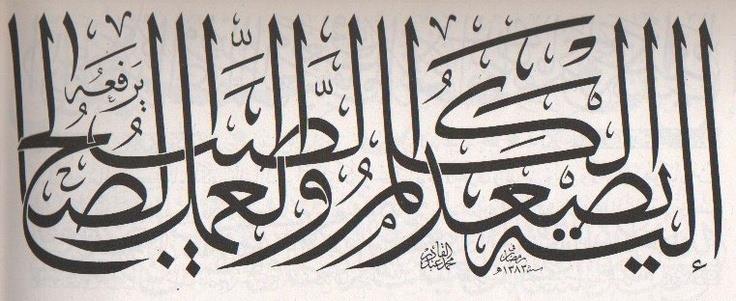 إليه يصعد الكلم الطيب والعمل الصالح يرفعه
محمد عبد القادر
في رمضان
سنة ١٣٨٣هـ